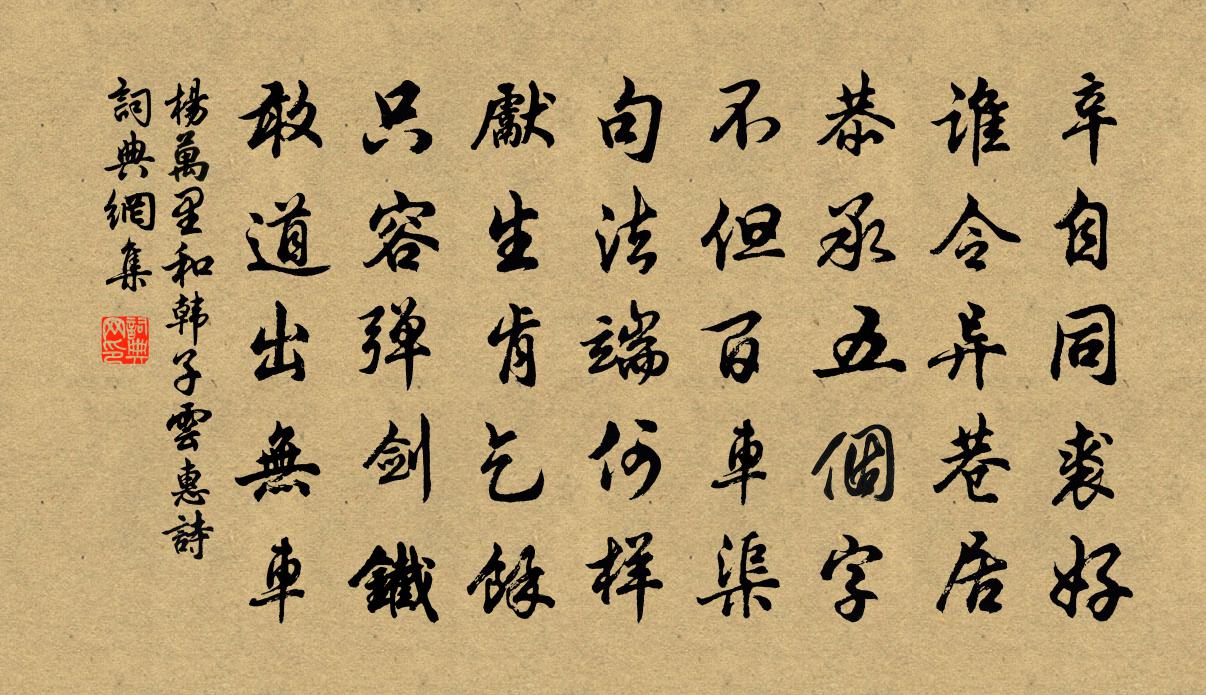 辛自同裘好
谁令异巷居
恭承五個字
不但百車渠
句法端何样
獻生肯乞餘
只容弹剑鐵
敢道出無車
楊萬里和韩子雲惠詩
詞典網集
詞典
网印